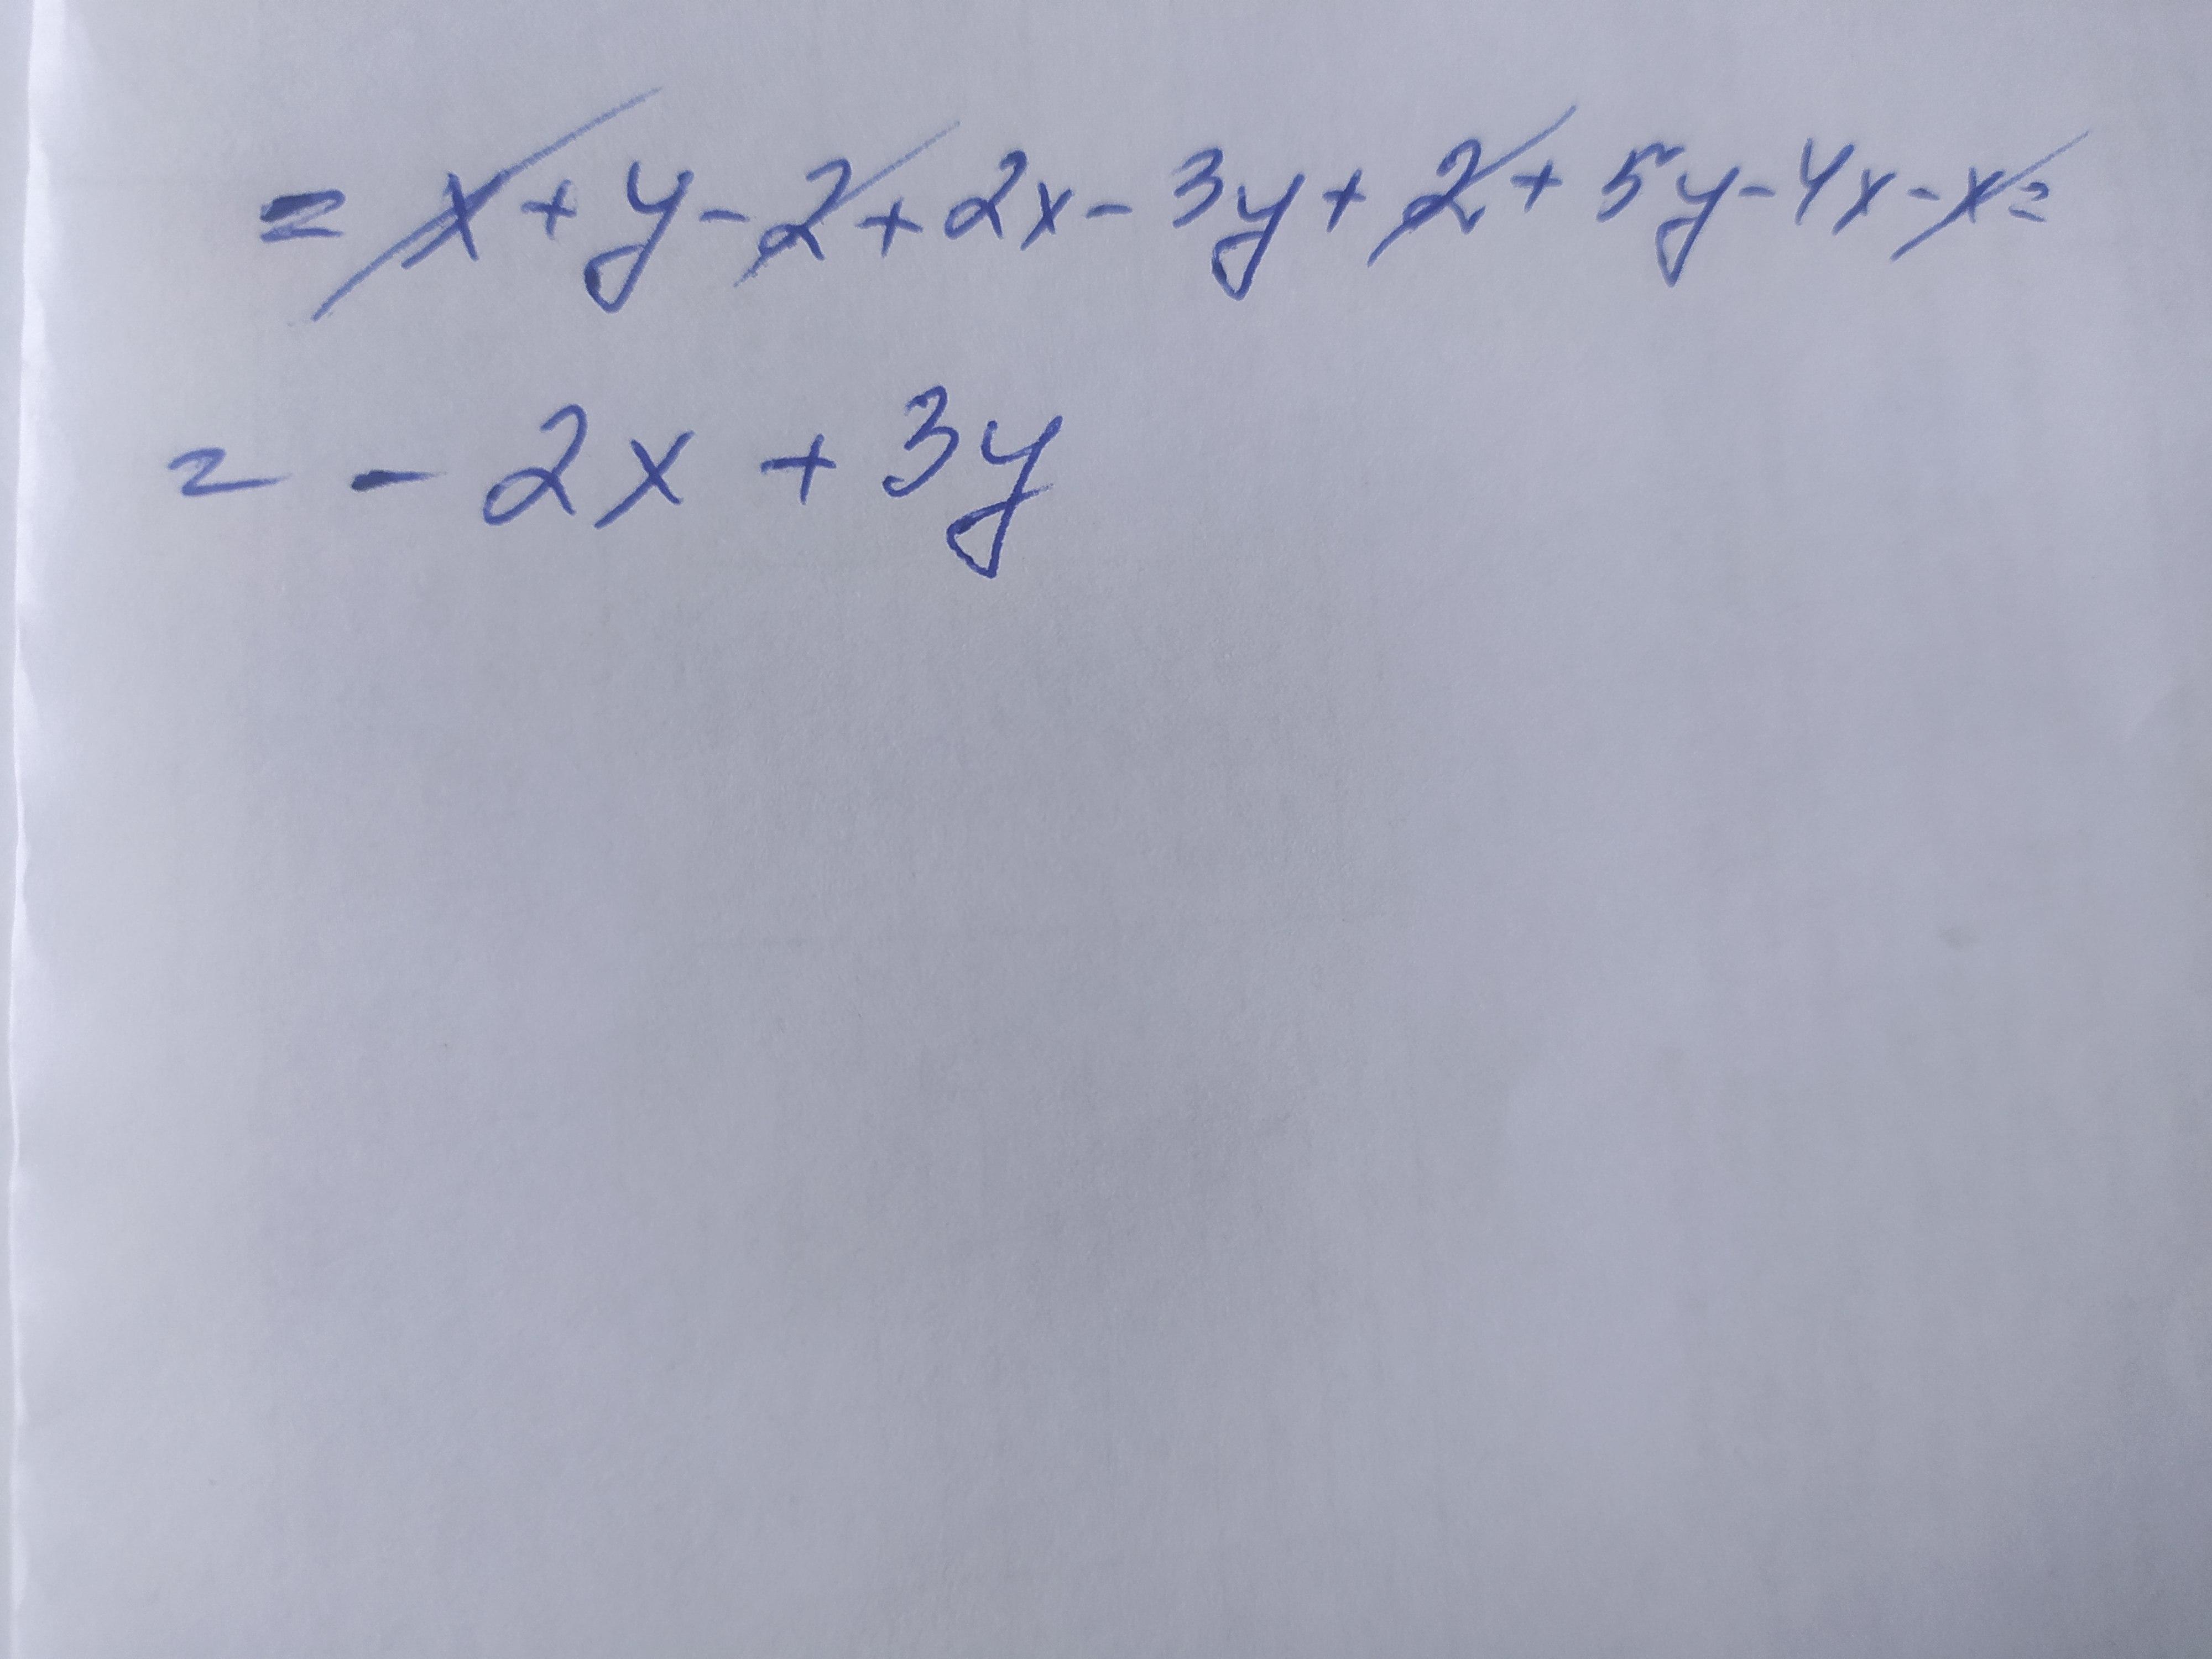 = x + y - 2 + 2x - 3y + 2 + 5y - 4x - x =
= - 2x + 3y